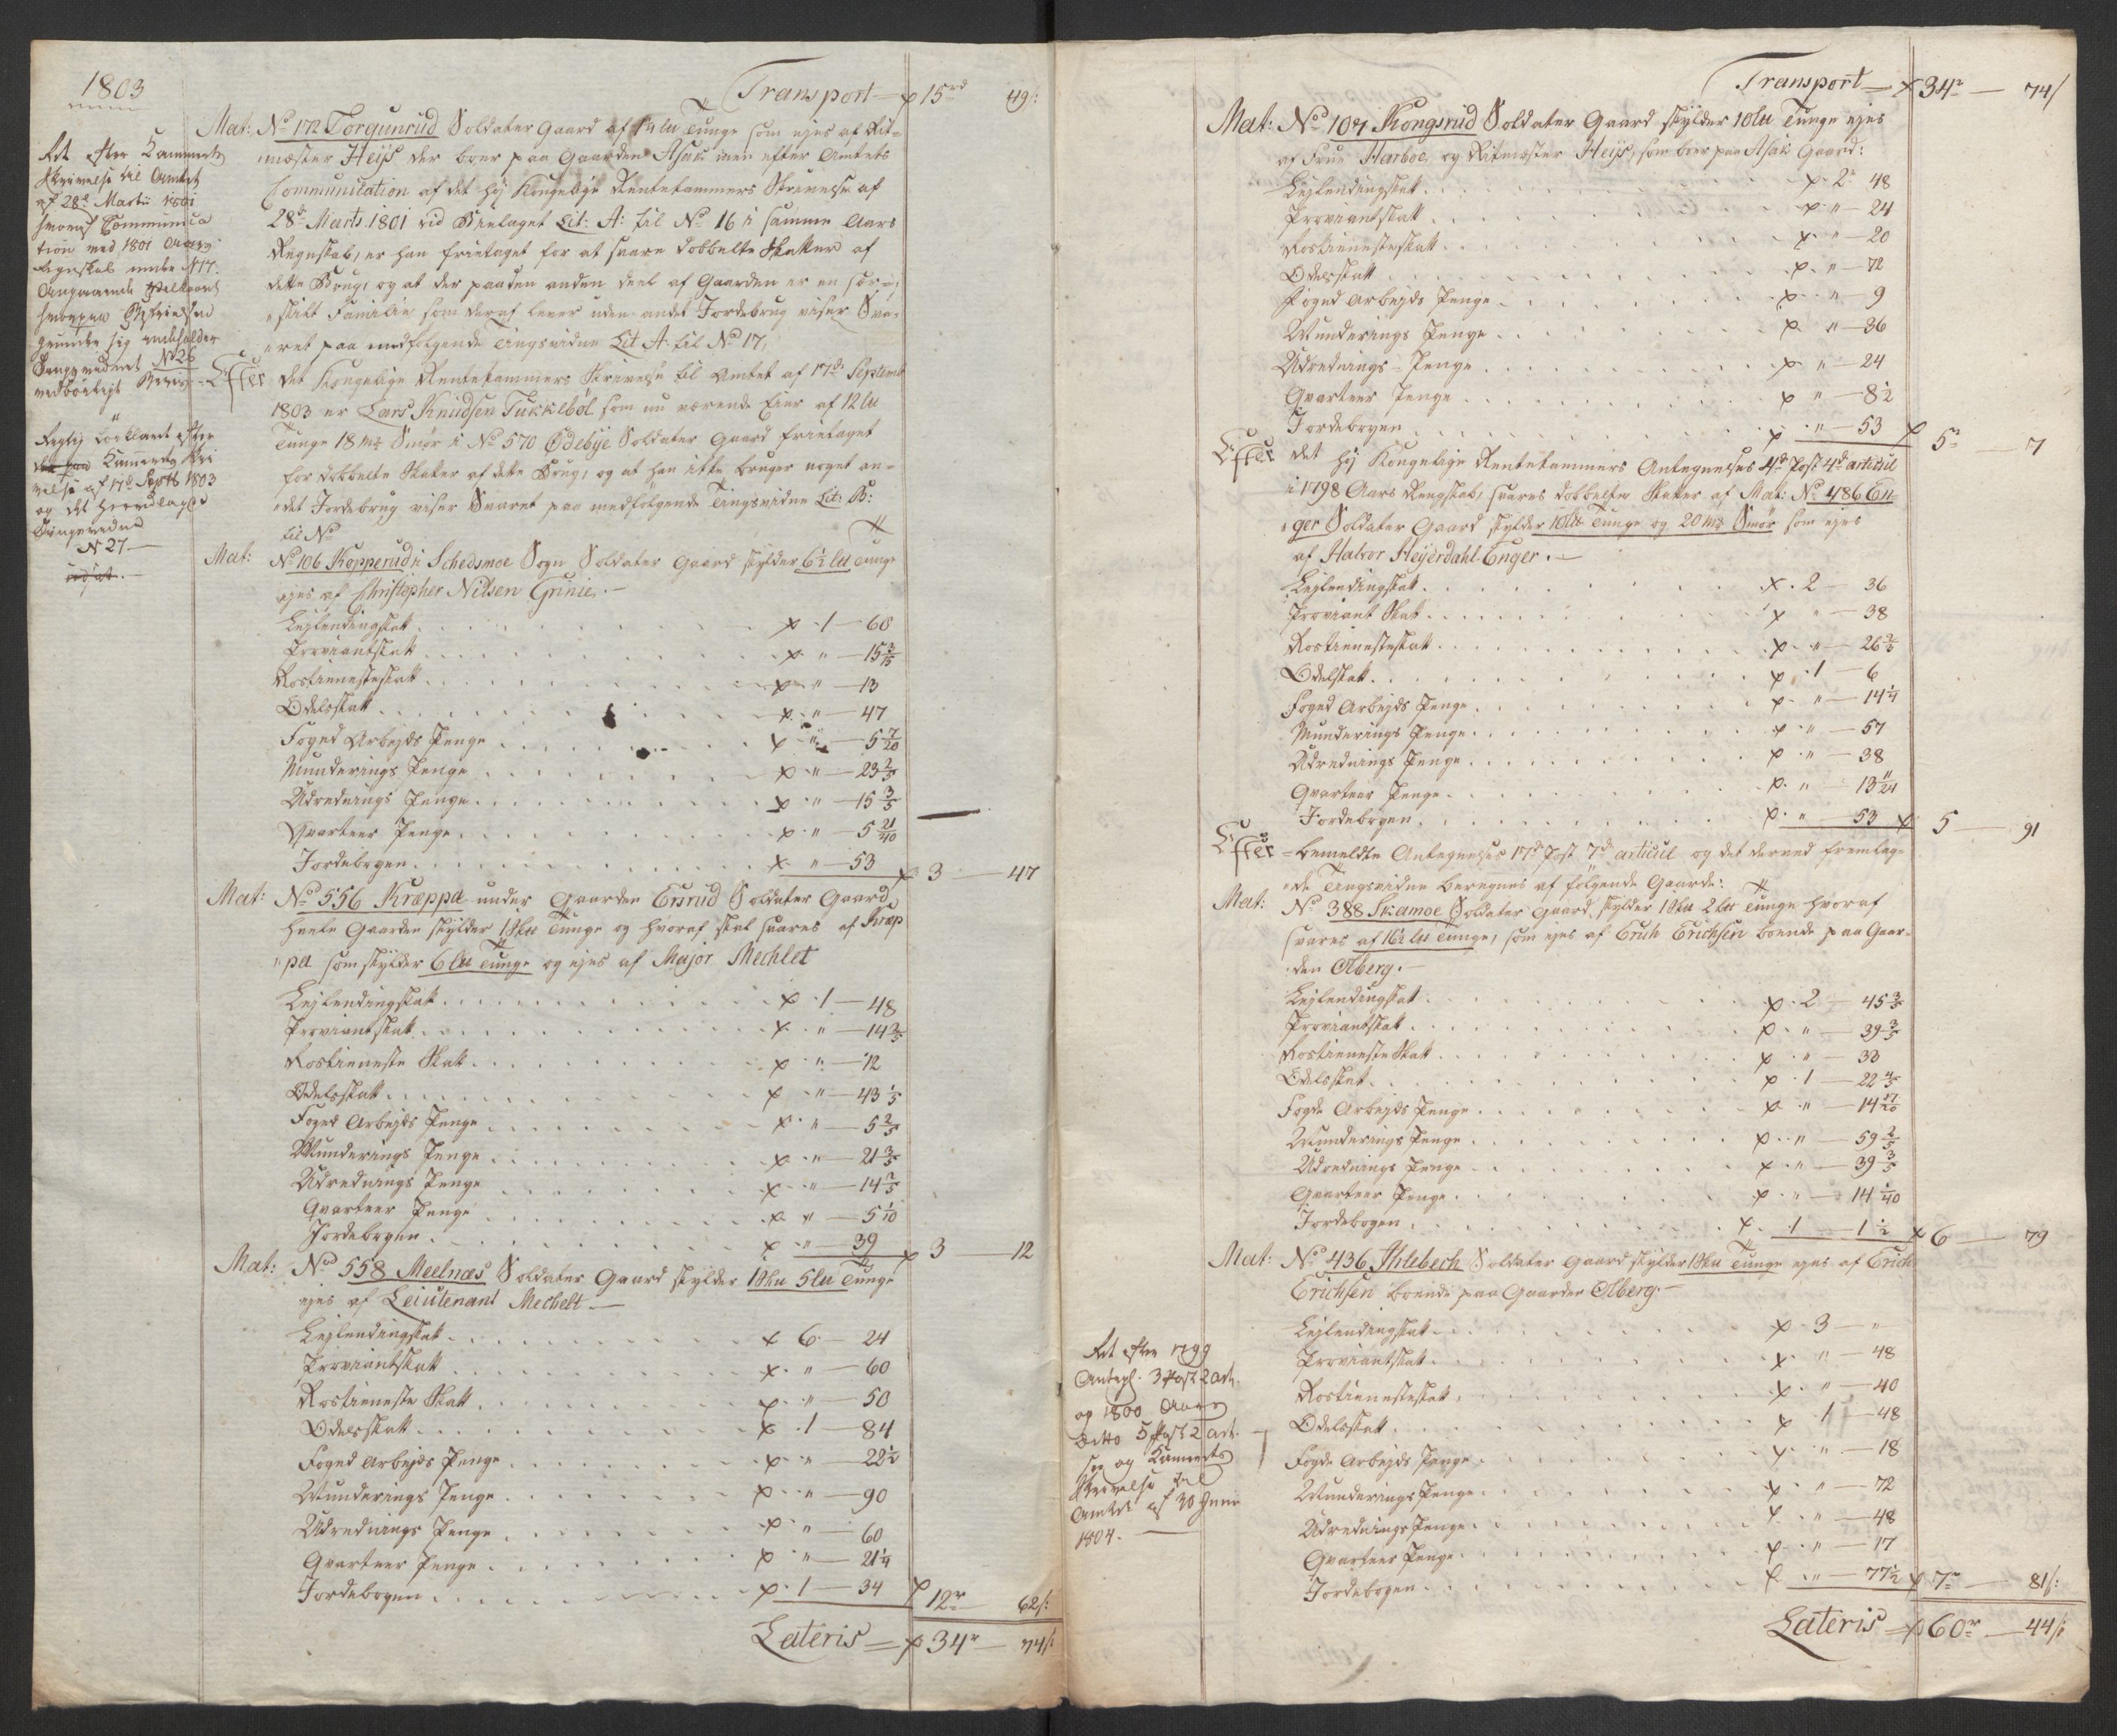 1803
Transport — 15rd 49ß:
Mat: No 172 Torgunrud Soldater Gaard af 14 lu Tunge som ejes af Rit-
mæster Heijs der boer paa Gaarden Asak men efter Amtets
Communication af det høj Kongelige Rentekammers Skrivelse af
28de Marts 1801 vid Bielaget Lit: A: til No 16 i samme Aars
Regnskab, er han frietaget for at svare dobbelte Skatter af
dette Brug, og at der paa den anden deel af Gaarden er en sær-
skilt Familie som deraf lever uden andet Jordebrug viser Sva-
ret paa medfølgende Tingsvidne Lit A. til No 17,
Efter det Kongelige Rentekammers Skrivelse til Amtet af 17de Septemb
1803 er Lars Knudsen Tukkebøl som nu værende Eier af 12 lu
Tunge 18 mk Smør i No 570 Ødebye Soldater Gaard frietaget
for dobbelte Skatter af dette Brug, og at han ikke bruger noget an-
det Jordebrug viser Svaret paa medfølgende Tingsvidne Lit: B:
til No
Mat: No 106 Kopperud i Schedsmoe Sogn Soldater Gaard skylder 6½ lu Tunge
ejes af Christopher Nilsen Grinie. —
Lejlendingskat . 1 — 60
Proviantskat . " — 15 3/15
Rostienesteskatt . " — 13
Odelsskatt . " — 47
Foged Arbejds Penge . " — 5 7/20
Munderings Penge . " — 23 2/5
Udrednings Penge . " — 15 3/5
Qvarteer Penge . " — 5 21/40
Jordebogen . " — 53 3 — 47
Mat: No 556 Kræppa under Gaarden Ersrud Soldater Gaard
heele Gaarden skylder 1 Sku Tunge og hvoraf skal svares af Kræp
pa som skylder 6 lu Tunge og ejes af Major Mechlet
Lejlendingskat . 1 — 48
Proviantskat . " — 14 2/5
Rostieneste Skatt . " — 12
Odelsskatt . " — 43 1/5
Foged Arbejds Penge . " — 5 2/5
Munderings Penge . " — 21 3/5
Udrednings Penge . " — 14 2/5
Qvarteer Penge . " — 5 1/10
Jordebogen . " — 39 3 — 12
Mat: No 558 Meelnæs Soldater Gaard skylder 1 Sku 5 lu Tunge
ejes af Leiutenant Mechelt —
Lejlendingskat . 6 — 24
Proviantskatt . " — 60
Rostieneste Skatt . " — 50
Odelsskatt . 1 — 84
Foged Arbejds Penge . " — 22½
Munderings Penge . " — 90
Udrednings Penge . " — 60
Qvarteer Penge . " — 21¼
Jordebogen . 1 — 34 12r 62ß:
Lateris = 34r — 74ß
Ret efter Kammerets
Skrivelse til Amtet
af 28de Martii 1801
hvoraf Communica
tion med 1801 Aars
Regnskab under N 17.
Angaaende Vilkaaret
hvorpaa Befrielsen
grunder sig indeholder
Tingsvidnet No 26
vedbørligt Beviis
Rigtig forklaret efter
Kammerets Skri
velse af 17de Septb 1803
og det hervedlagde
Tingsvidne
N 27 —
Transport — 34r — 74ß
Mat: No 104 Kongsrud Soldater Gaard skylder 10 lu Tunge ejes
af Frue Harboe og Ritmæster Heijs, som boer paa Asak Gaard:
Lejlendingskatt . 2r 48
Proviantskatt . " — 24
Rostienesteskatt . " — 20
Odelsskatt . " — 72
Foged Arbejds Penge . " — 9
Munderings Penge . " — 36
Udrednings Penge . " — 24
Qvarteer Penge . " — 8½
Jordebogen . " — 53 5r — 7
Efter det høj Kongelige Rentekammers Antegnelses 4de Post 4de articul
i 1798 Aars Regnskab, svares dobbelte Skatter af Mat: No 486 En-
ger Soldater Gaard skylder 10 lu Tunge og 20 mk Smør som ejes
af Halvor Heyerdahl Enger. —
Lejlendingskat . 2 — 36
Proviant Skat . " — 38
Rostienesteskat . " — 26 2/5
Odelskat . 1 — 6
Foged Arbejds Penge . " — 14¼
Munderings Penge . " — 57
Udrednings Penge . " — 38
Qvarteer Penge . " 13 11/24
Jordebogen . " — 53 5 — 91
Efter bemeldte Antegnelses 17de Post 7de articul og det derved fremlag-
de Tingsvidne beregnes af følgende Gaarde:
Mat: No 388 Skamoe Soldater Gaard, skylder 1 Sku 2 lu Tunge hvoraf
svares af 16½ lu Tunge, som ejes af Erich Erichsen boende paa Gaar-
den Olberg. —
Lejlendingskat . 2 — 45 3/5
Proviantskat . " — 39 3/5
Rostieneste Skatt . " — 33
Odelsskat . 1 — 22 4/5
Fogde Arbejds Penge . " — 14 17/20
Munderings Penge . " — 59 2/5
Udrednings Penge . " — 39 3/5
Qvarteer Penge . " — 14 1/40
Jordebogen . 1 — 1½ 6 — 79
Mat: No 436 Ihlebech Soldater Gaard skylder 1 Sku Tunge ejes af Erich
Erichsen boende paa Gaarden Olberg. —
Lejlendingskat . 3 — "
Proviantskat . " — 48
Rostienesteskat . " — 40
Odelsskat . 1 — 48
Fogde Arbejds Penge . " — 18
Munderings Penge . " — 72
Udrednings Penge . " — 48
Qvarteer Penge . " — 17
Jordebogen . " — 77½ 7r — 81ß:
Lateris = 60r — 44ß
Ret efter 1799
Antegn. 3 Post 2 Art.
og 1800 Aars
Ditto 5 Post 2 Art.
see og Kammerets
Skrivelse til
Amtet af 30 Junii
1804. —